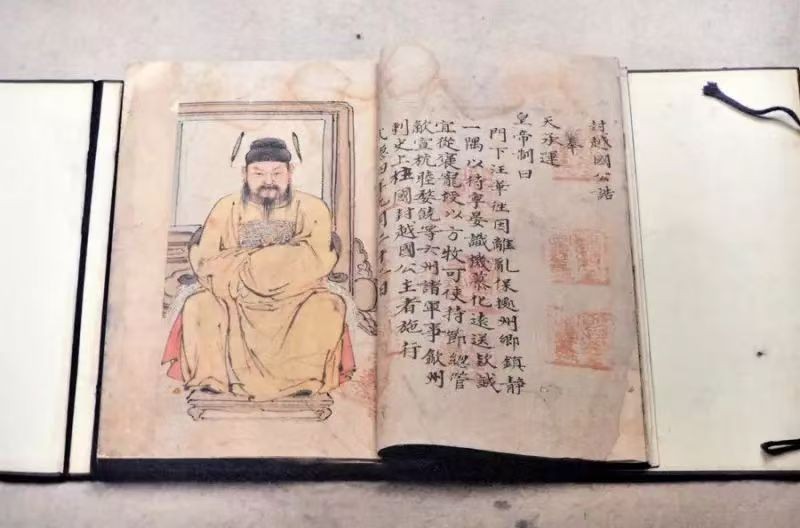 封越國公誥
奉
天承運
皇帝制曰
門下汪華往因離亂保據州鄉鎮静
一隅以待寧晏識機慕化遠送款誠
宜從褒寵授以方牧可使持節總管
歙宣杭睦婺饒等六州諸軍事歙州
刺史上柱國封越國公主者施行
武德四年九月二十二日